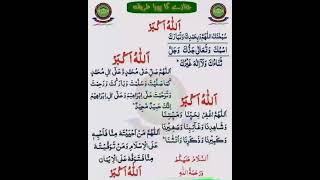 جنازے کا پورا طریقہ
اَللّٰهُ اَكْبَرْ
سُبْحٰنَكَ اللّٰهُمَّ وَبِحَمْدِكَ وَتَبَارَكَ
اسْمُكَ وَتَعَالٰى جَدُّكَ وَجَلَّ
ثَنَاءُكَ وَلَا اِلٰهَ غَيْرُكَ
اَللّٰهُ اَكْبَرْ
اَللّٰهُمَّ صَلِّ عَلٰى مُحَمَّدٍ وَّعَلٰى اٰلِ مُحَمَّدٍ
كَمَا صَلَّيْتَ وَسَلَّمْتَ وَبَارَكْتَ وَرَحِمْتَ
وَتَرَحَّمْتَ عَلٰى اِبْرَاهِيْمَ وَعَلٰى اٰلِ اِبْرَاهِيْمَ
اِنَّكَ حَمِيْدٌ مَّجِيْدٌ
اَللّٰهُ اَكْبَرْ
اَللّٰهُمَّ اغْفِرْ لِحَيِّنَا وَمَيِّتِنَا
وَشَاهِدِنَا وَغَائِبِنَا وَصَغِيْرِنَا
وَكَبِيْرِنَا وَذَكَرِنَا وَاُنْثَانَا
اَللّٰهُمَّ مَنْ اَحْيَيْتَهٗ مِنَّا فَاَحْيِهٖ
عَلَى الْاِسْلَامِ وَمَنْ تَوَفَّيْتَهٗ
مِنَّا فَتَوَفَّهٗ عَلَى الْاِيْمَانِ
اَللّٰهُ اَكْبَرْ
اَلسَّلَامُ عَلَيْكُمْ
وَرَحْمَةُ اللّٰهِ